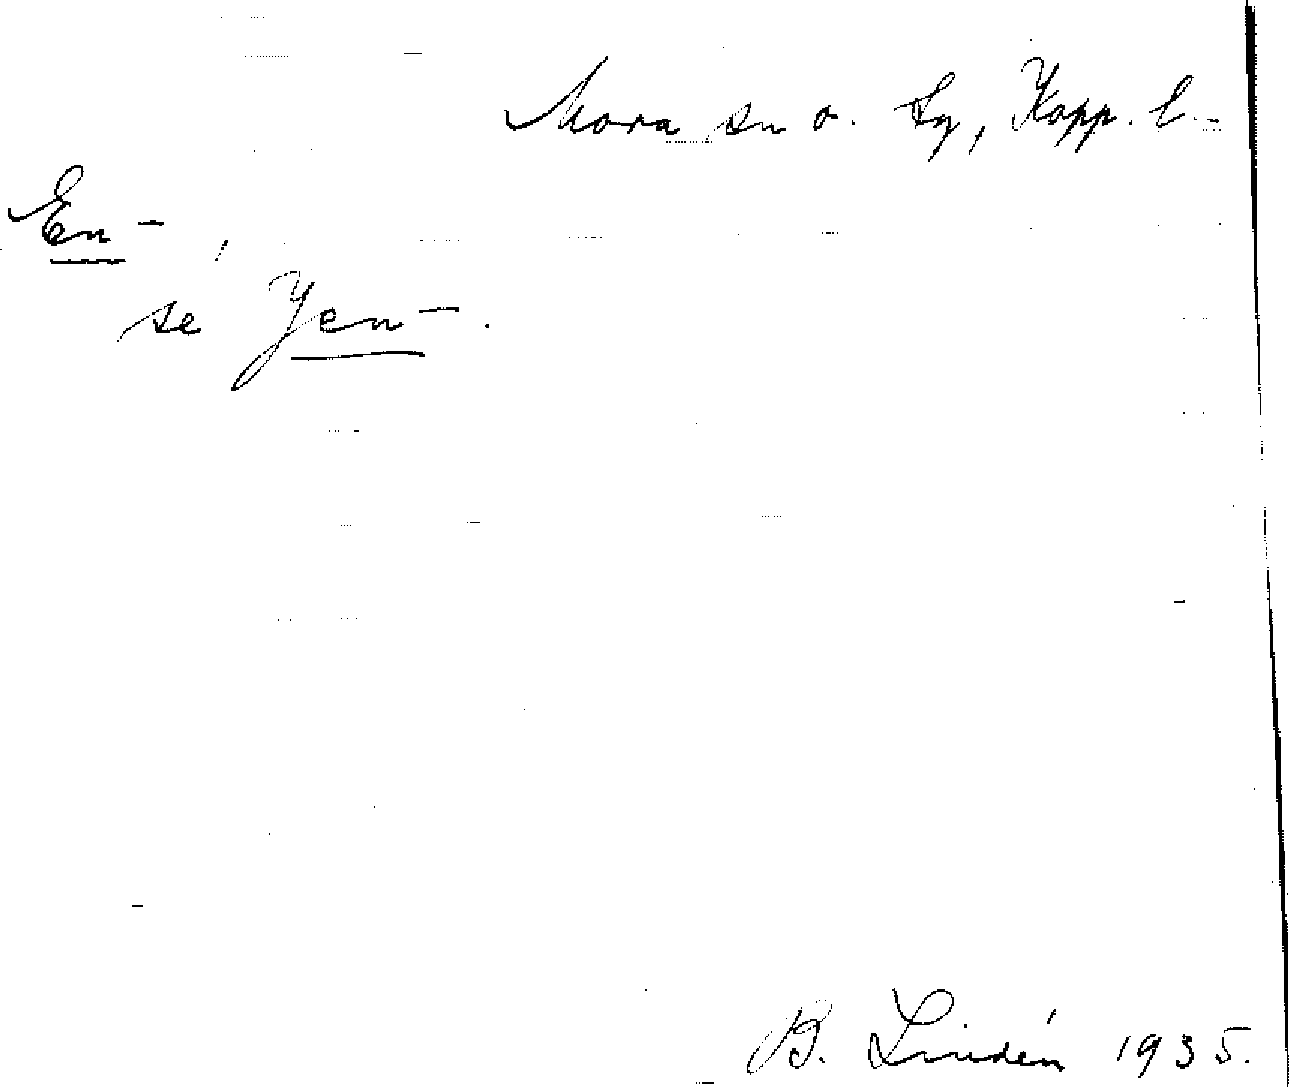 Mora sn o. tg, Kopp. l.
En-,
se Jen-.
B. Lindén 1935.